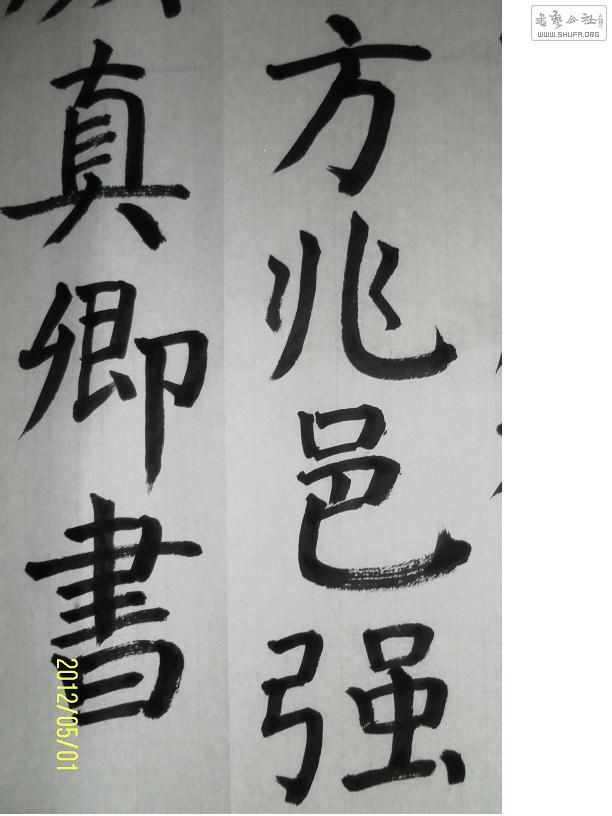 方兆邑强
真卿書
2012/05/01
书艺公社
WWW.SHUFA.ORG